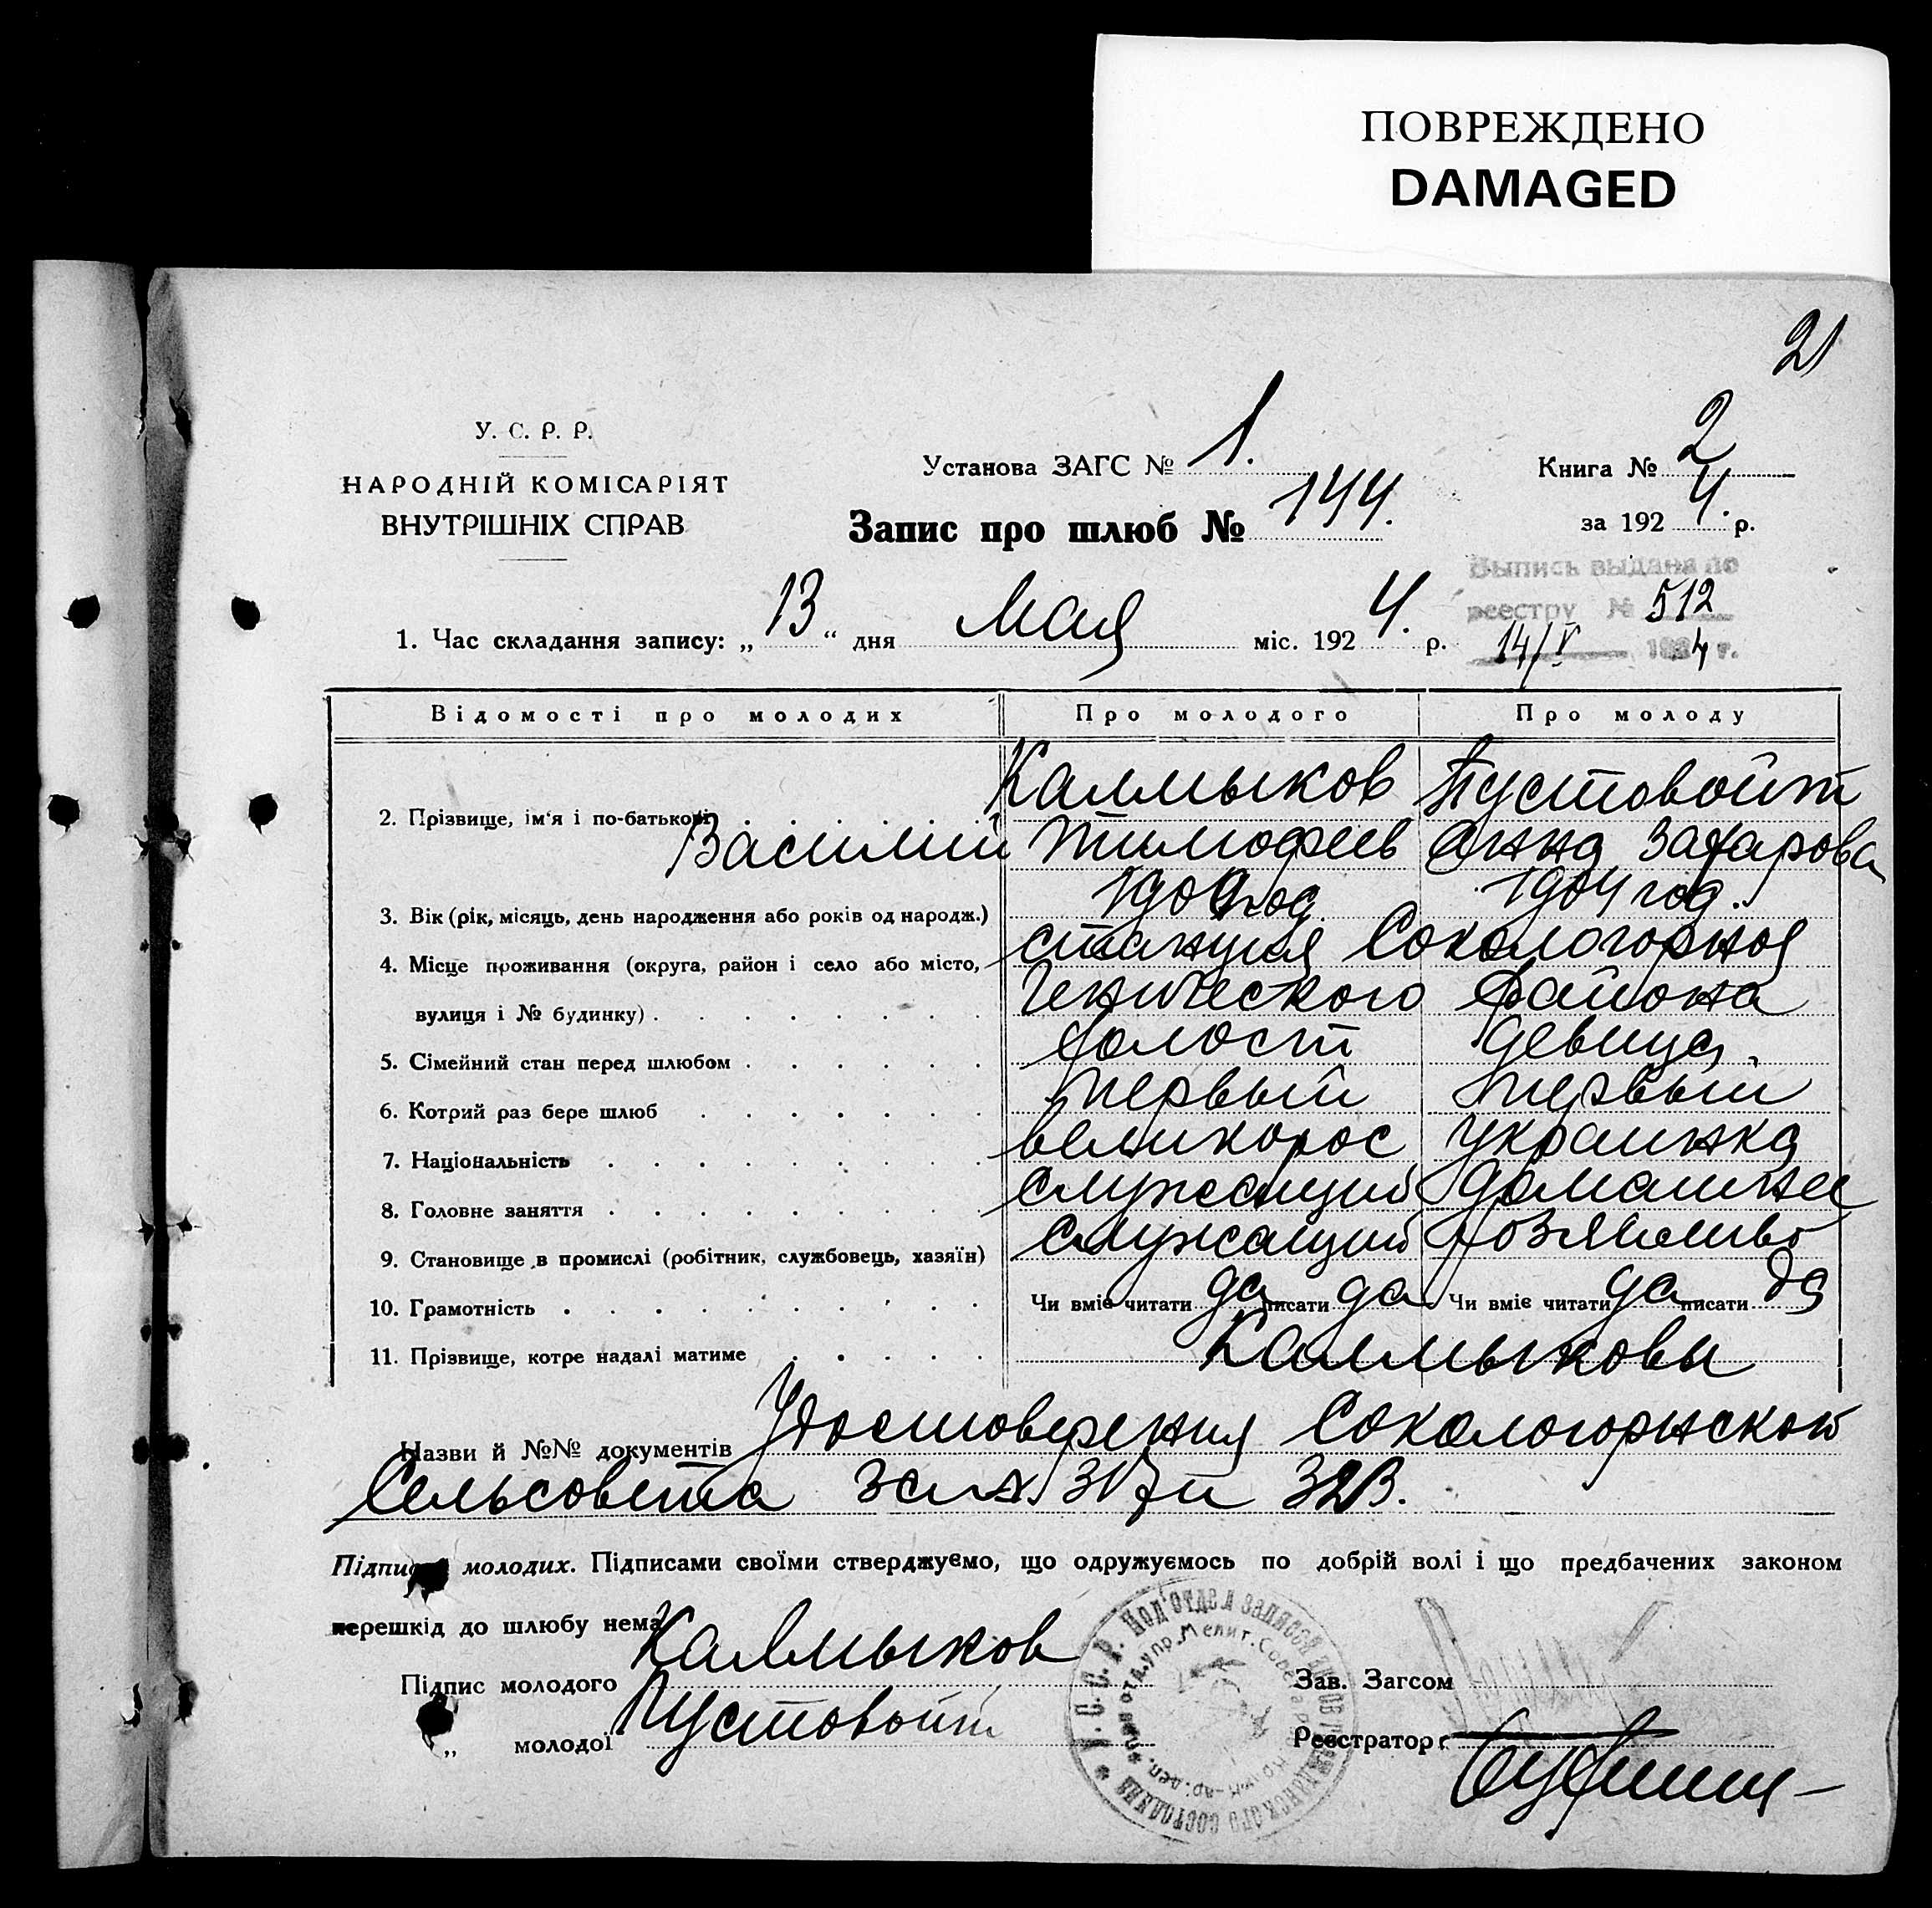 ПОВРЕЖДЕНО
DAMAGED
21
У. С. Р. Р.
НАРОДНІЙ КОМІСАРІЯТ
ВНУТРІШНІХ СПРАВ
Установа ЗАГС № 1.
Книга № 2
Запис про шлюб № 144.
за 192 4. р.
Выпись выдана по
реестру № 512
14/V 1924 г.
1. Час складання запису: „ 13 “ дня Мая міс. 192 4. р.
Відомості про молодих Про молодого Про молоду
2. Прізвище, ім'я і по-батькові Калмыков Пустовойт
Василий Тимофеев Анна Захарова
3. Вік (рік, місяць, день народження або років од народж.) 1904 год.
4. Місце проживання (округа, район і село або місто, станция Сокологорная
вулиця і № будинку) Генического района
5. Сімейний стан перед шлюбом холост девица.
6. Котрий раз бере шлюб первый первый
7. Національність великорос украинка
8. Головне заняття служащий домашнее
9. Становище в промислі (робітник, службовець, хазяїн) служащий хозяйство
10. Грамотність Чи вміє читати да писати да Чи вміє читати да писати да
11. Прізвище, котре надалі матиме Калмыковы
Назви й №№ документів Удостоверения Сокологорнской
Сельсовета за
Підписи молодих. Підписами своїми стверджуємо, що одружуємось по добрій волі і що предбачених законом
перешкід до шлюбу нема
Підпис молодого Калмыков
Зав. Загсом
„ молодої Пустовойт
Реєстратор
У.С.С.Р. Под'отдел записей актов гражданского состояния